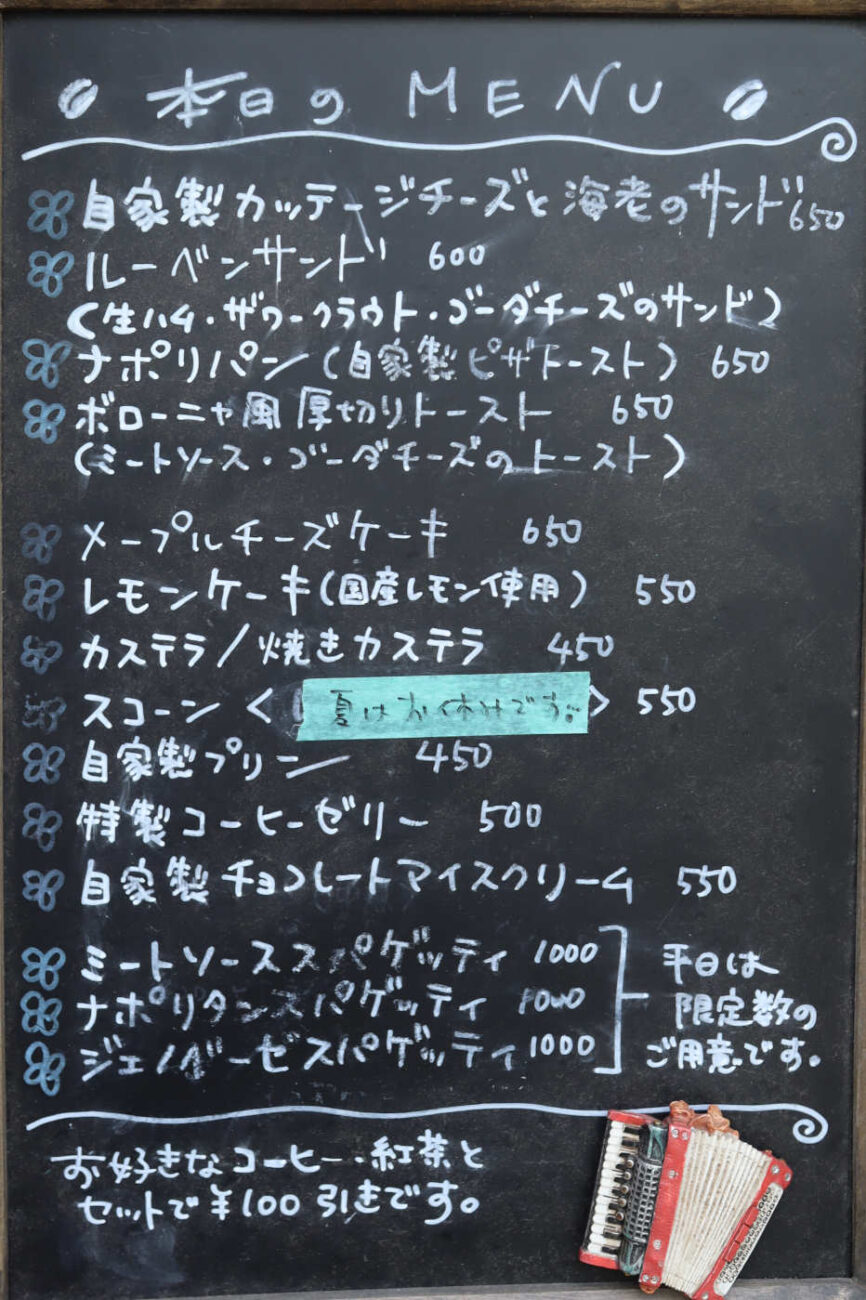 本日の MENU
自家製カッテージチーズと海老のサンド 650
ルーベンサンド 600
(生ハム・ザワークラウト・ゴーダチーズのサンド)
ナポリパン(自家製ピザトースト) 650
ボローニャ風厚切りトースト 650
(ミートソース・ゴーダチーズのトースト)
メープルチーズケーキ 650
レモンケーキ(国産レモン使用) 550
カステラ/焼きカステラ 450
スコーン < 夏はお休みです。 > 550
自家製プリン 450
特製コーヒーゼリー 500
自家製チョコレートアイスクリーム 550
ミートソーススパゲッティ 1000
ナポリタンスパゲッティ 1000
ジェノベーゼスパゲッティ 1000
平日は
限定数の
ご用意です。
お好きなコーヒー・紅茶と
セットで¥100引きです。